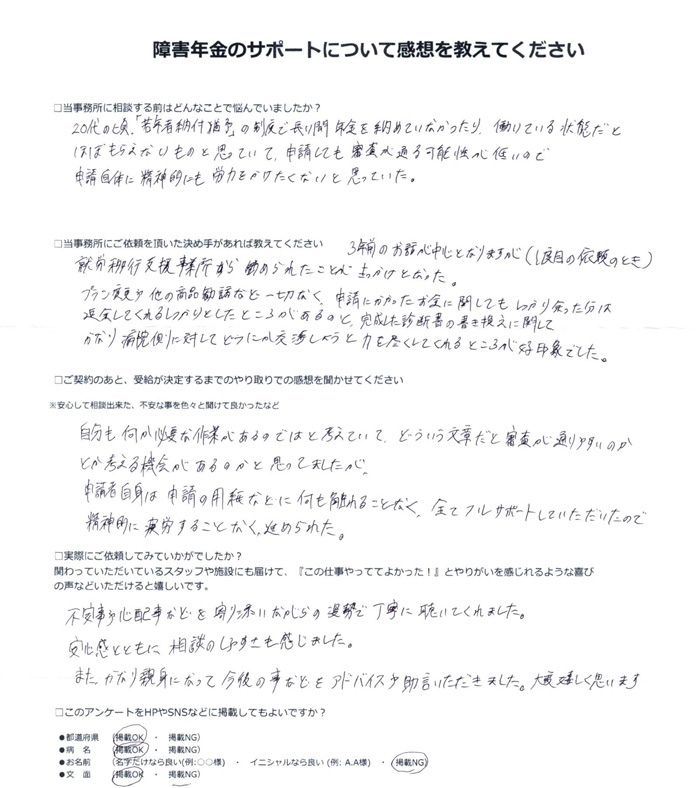 障害年金のサポートについて感想を教えてください
□当事務所に相談する前はどんなことで悩んでいましたか？
20代の頃、「若年者納付猶予」の制度で長い間年金を納めていなかったり、働いている状態だと
ほぼもらえないものと思っていて、申請しても審査が通る可能性が低いので
申請自体に精神的にも労力をかけたくないと思っていた。
□当事務所にご依頼を頂いた決め手があれば教えてください
3年前のお話が中心となりますが（1度目の依頼のとき）
就労移行支援事業所から勧められたことがきっかけとなった。
プラン変更や他の商品勧誘など一切なく、申請にかかったお金に関してもしっかり余った分は
返金してくれるしっかりとしたところがあるのと、完成した診断書の書き換えに関して
かなり病院側に対してどうにか交渉しようと力を尽くしてくれるところが好印象でした。
□ご契約のあと、受給が決定するまでのやり取りでの感想を聞かせてください
※安心して相談出来た、不安な事を色々と聞けて良かったなど
自分も何か必要な作業があるのではと考えていて、どういう文章だと審査が通りやすいのか
とか考える機会があるのかと思ってましたが、
申請者自身は申請の用紙などに何も触れることなく、全てフルサポートしていただいたので
精神的に疲労することなく、進められた。
□実際にご依頼してみていかがでしたか？
関わっていただいているスタッフや施設にも届けて、『この仕事やっててよかった！』とやりがいを感じれるような喜び
の声などいただけると嬉しいです。
不安事や心配事などを寄り添いながらの姿勢で丁寧に聴いてくれました。
安心感とともに相談のしやすさも感じました。
また、かなり親身になって今後の事などをアドバイスや助言いただきました。大変嬉しく思います
□このアンケートをHPやSNSなどに掲載してもよいですか？
●都道府県 （掲載OK ・ 掲載NG）
●病 名 （掲載OK ・ 掲載NG）
●お名前 （名字だけなら良い(例:○○様) ・ イニシャルなら良い (例: A.A様) ・ 掲載NG）
●文 面 （掲載OK ・ 掲載NG）